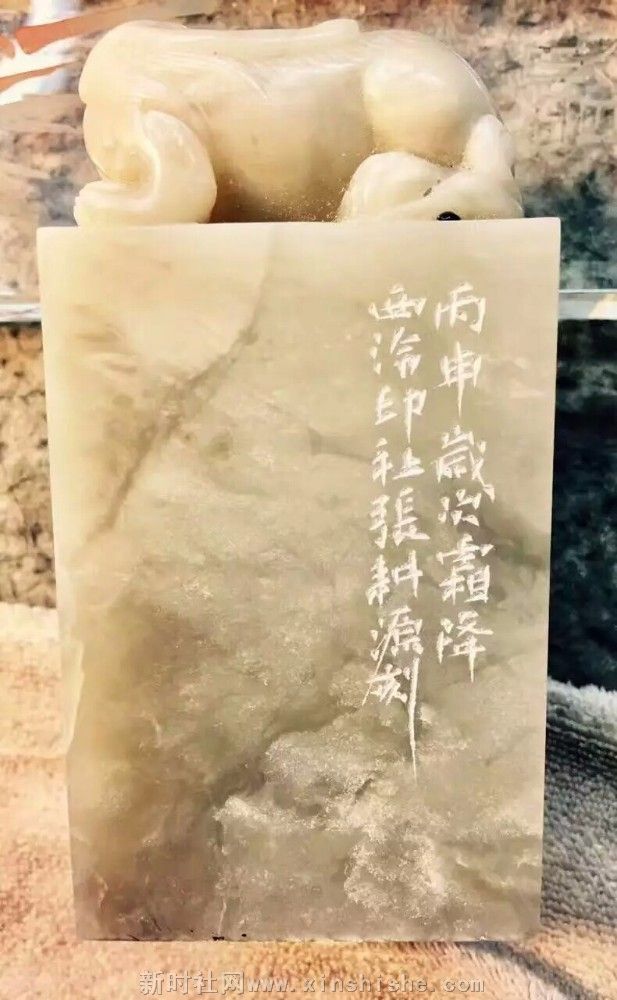 丙申歲次霜降
西泠印社張耕源刻
新时社网www.xinshishe.com